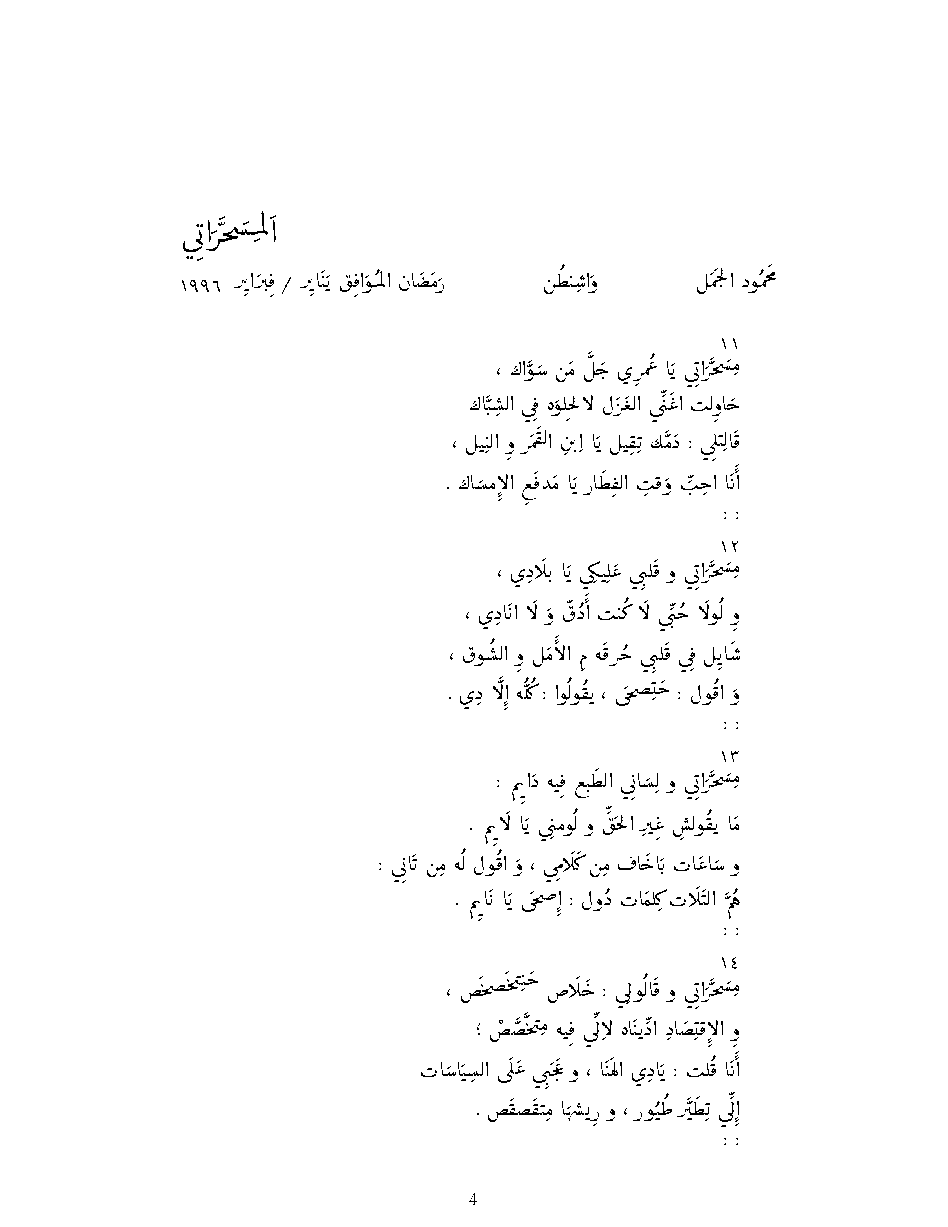 اَلمِسَحَّرَاتِي
مَحَمُود الجَمَل وَاشِنطُن رَمَضَان المُوَافِق يَنَايِر / فِبرَايِر ١٩٩٦
١١
مِسَحَّرَاتِي يَا عُمرِي جَلَّ مَن سَوَّاك ،
حَاوِلت اغَنِّي الغَزَل لالحِلوَه فِي الشِبَّاك
قَالِتلِي : دَمَّك تِقِيل يَا اِبنِ القَمَر وِ النِيل ،
أَنَا احِبِّ وَقتِ الفِطَار يَا مَدفَعِ الإِمسَاك .
: :
١٢
مِسَحَّرَاتِي و قَلبِي عَلِيكِي يَا بلَادِي ،
وِ لُولَا حُبِّي لَا كُنت أَدُقّ وَ لَا انَادِي ،
شَايِل فِي قَلبِي حُرقَه مِ الأَمَل وِ الشُوق ،
وَ اقُول : حَتِصحَى ، يقُولُوا : كُلُّه إِلَّا دِي .
: :
١٣
مِسَحَّرَاتِي و لِسَانِي الطَبع فِيه دَايِم :
مَا يقُولشِ غِيرِ الحَقِّ و لُومنِي يَا لَايِم .
و سَاعَات بَاخَاف مِن كَلَامِي ، وَ اقُول لُه مِن تَانِي :
هُمَّ التَلَات كِلمَات دُول : إِصحَى يَا نَايِم .
: :
١٤
مِسَحَّرَاتِي و قَالُولِي : خَلَاص حَنِتخَصخَص ،
وِ الإِقتِصَادِ ادِّينَاه لاِلِّي فِيه مِتخَصَّصْ ؛
أَنَا قُلت : يَادِي الهَنَا ، و عَجَبِي عَلَى السِيَاسَات
إِلِّي تِطَيَّر طُيُور ، و رِيشهَا مِتقَصقَص .
: :
4